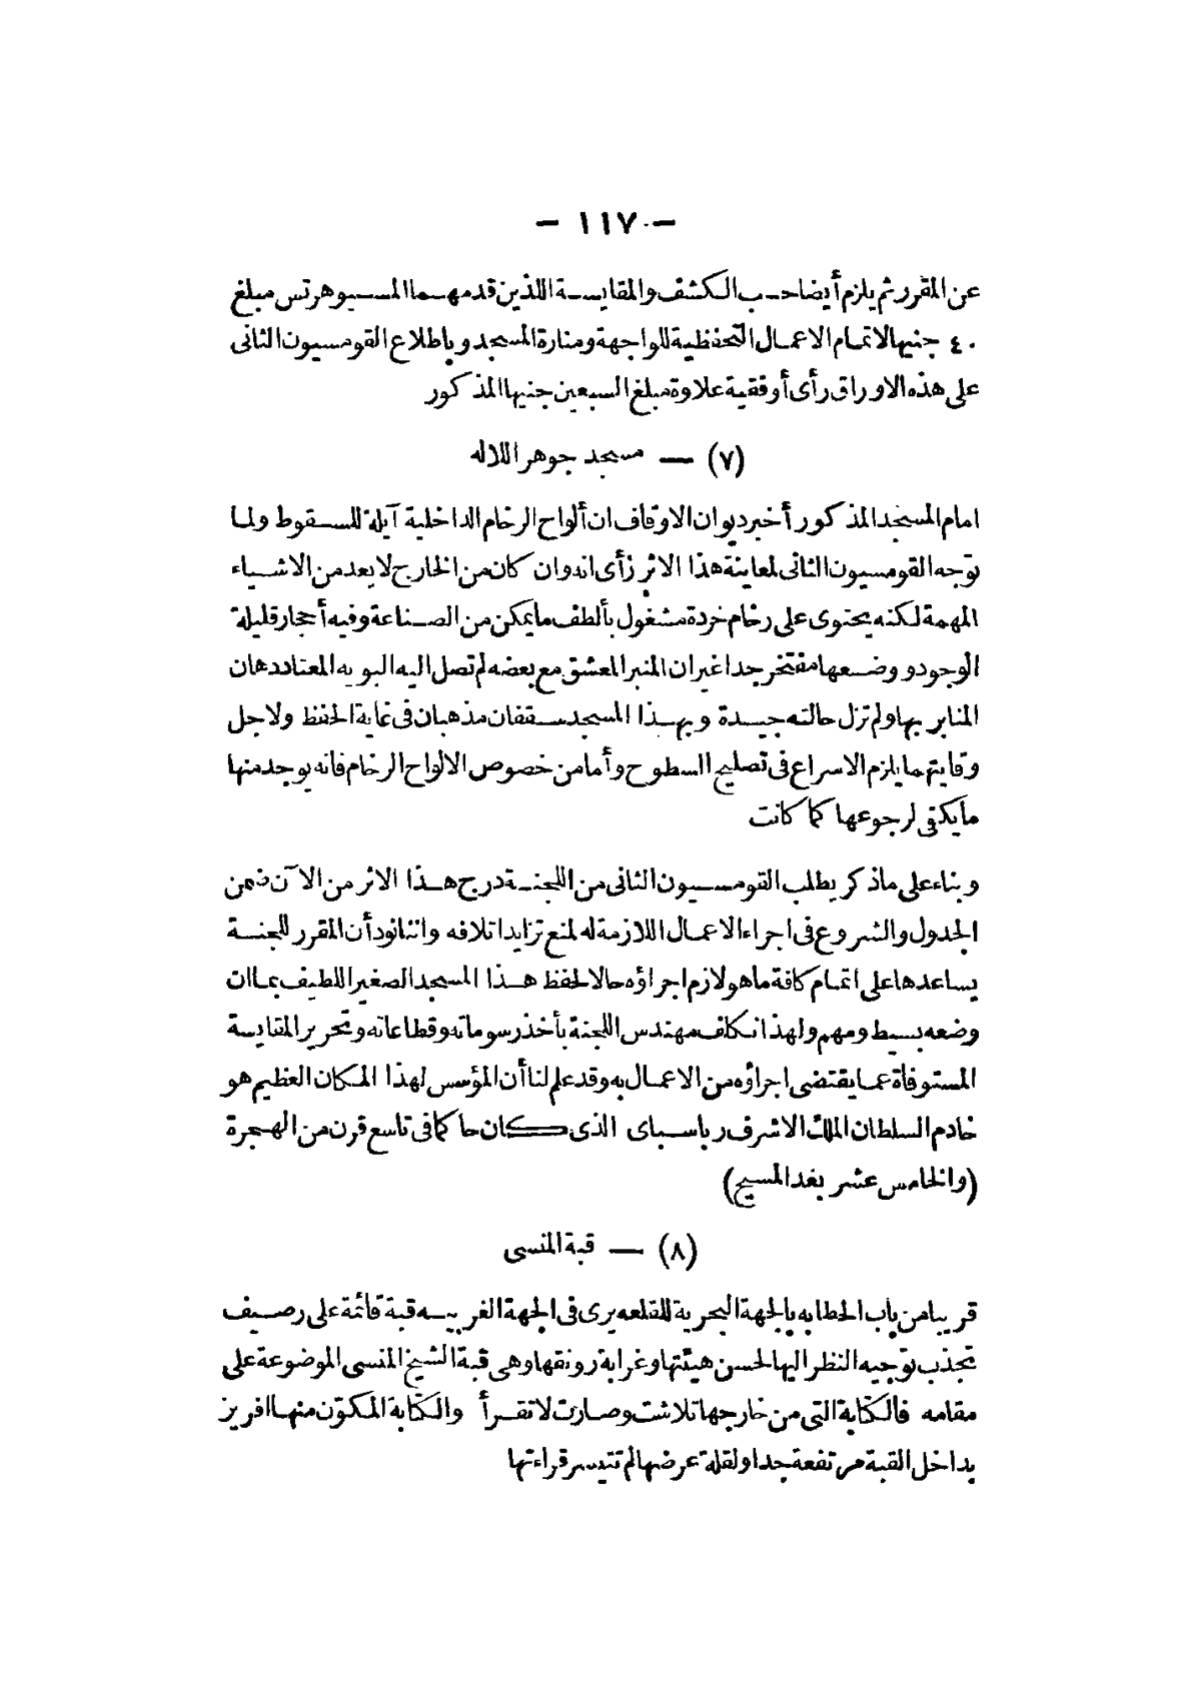 — ١١٧ —
عن المقرر ثم يلزم أيضا حسب الكشف والمقايسة اللذين قدمهما المسيو هرتس مبلغ
٤٠ جنيها لاتمام الاعمال التحفظية للواجهة ومنارة المسجد وباطلاع القومسيون الثانى
على هذه الاوراق رأى أوفقية علاوة مبلغ السبعين جنيها المذكور
(٧) — مسجد جوهر اللاله
امام المسجد المذكور أخبر ديوان الاوقاف ان ألواح الرخام الداخلية آيلة للسقوط ولما
توجه القومسيون الثانى لمعاينة هذا الاثر رأى انه وان كان من الخارج لا يعد من الاشياء
المهمة لكنه يحتوى على رخام خردة مشغول بألطف ما يمكن من الصناعة وفيه أحجار قليلة
الوجود ووضعها مفتخر جدا غير ان المنبر المعشق مع بعضه لم تصل اليه البويه المعتاد دهان
المنابر بها ولم تزل حالته جيدة وبهذا المسجد سقفان مذهبان فى غاية الحفظ ولاجل
وقايتهما يلزم الاسراع فى تصليح السطوح وأما من خصوص الالواح الرخام فانه يوجد منها
ما يكفى لرجوعها كما كانت
وبناء على ماذكر يطلب القومسيون الثانى من اللجنة درج هذا الاثر من الآن ضمن
الجدول والشروع فى اجراء الاعمال اللازمة له لمنع تزايد اتلافه واننا نود أن المقرر للجنة
يساعدها على اتمام كافة ما هو لازم اجراؤه حالا لحفظ هذا المسجد الصغير اللطيف بما ان
وضعه بسيط ومهم ولهذا نكلف مهندس اللجنة بأخذ رسوماته وقطاعاته وتحرير المقايسة
المستوفاة عما يقتضى اجراؤه من الاعمال به وقد علم لنا أن المؤسس لهذا المكان العظيم هو
خادم السلطان الملك الاشرف برباسباى الذى كان حاكما فى تاسع قرن من الهجرة
(والخامس عشر بعد المسيح)
(٨) — قبة المنسى
قريبا من باب الحطابه بالجهة البحرية للقلعه يرى فى الجهة الغربيه قبة قائمة على رصيف
تجذب توجيه النظر اليها لحسن هيئتها وغرابة رونقها وهى قبة الشيخ المنسى الموضوعة على
مقامه فالكتابة التى من خارجها تلاشت وصارت لا تقرأ والكتابة المكون منها افريز
بداخل القبة مرتفعة جدا ولقلة عرضها لم تتيسر قراءتها